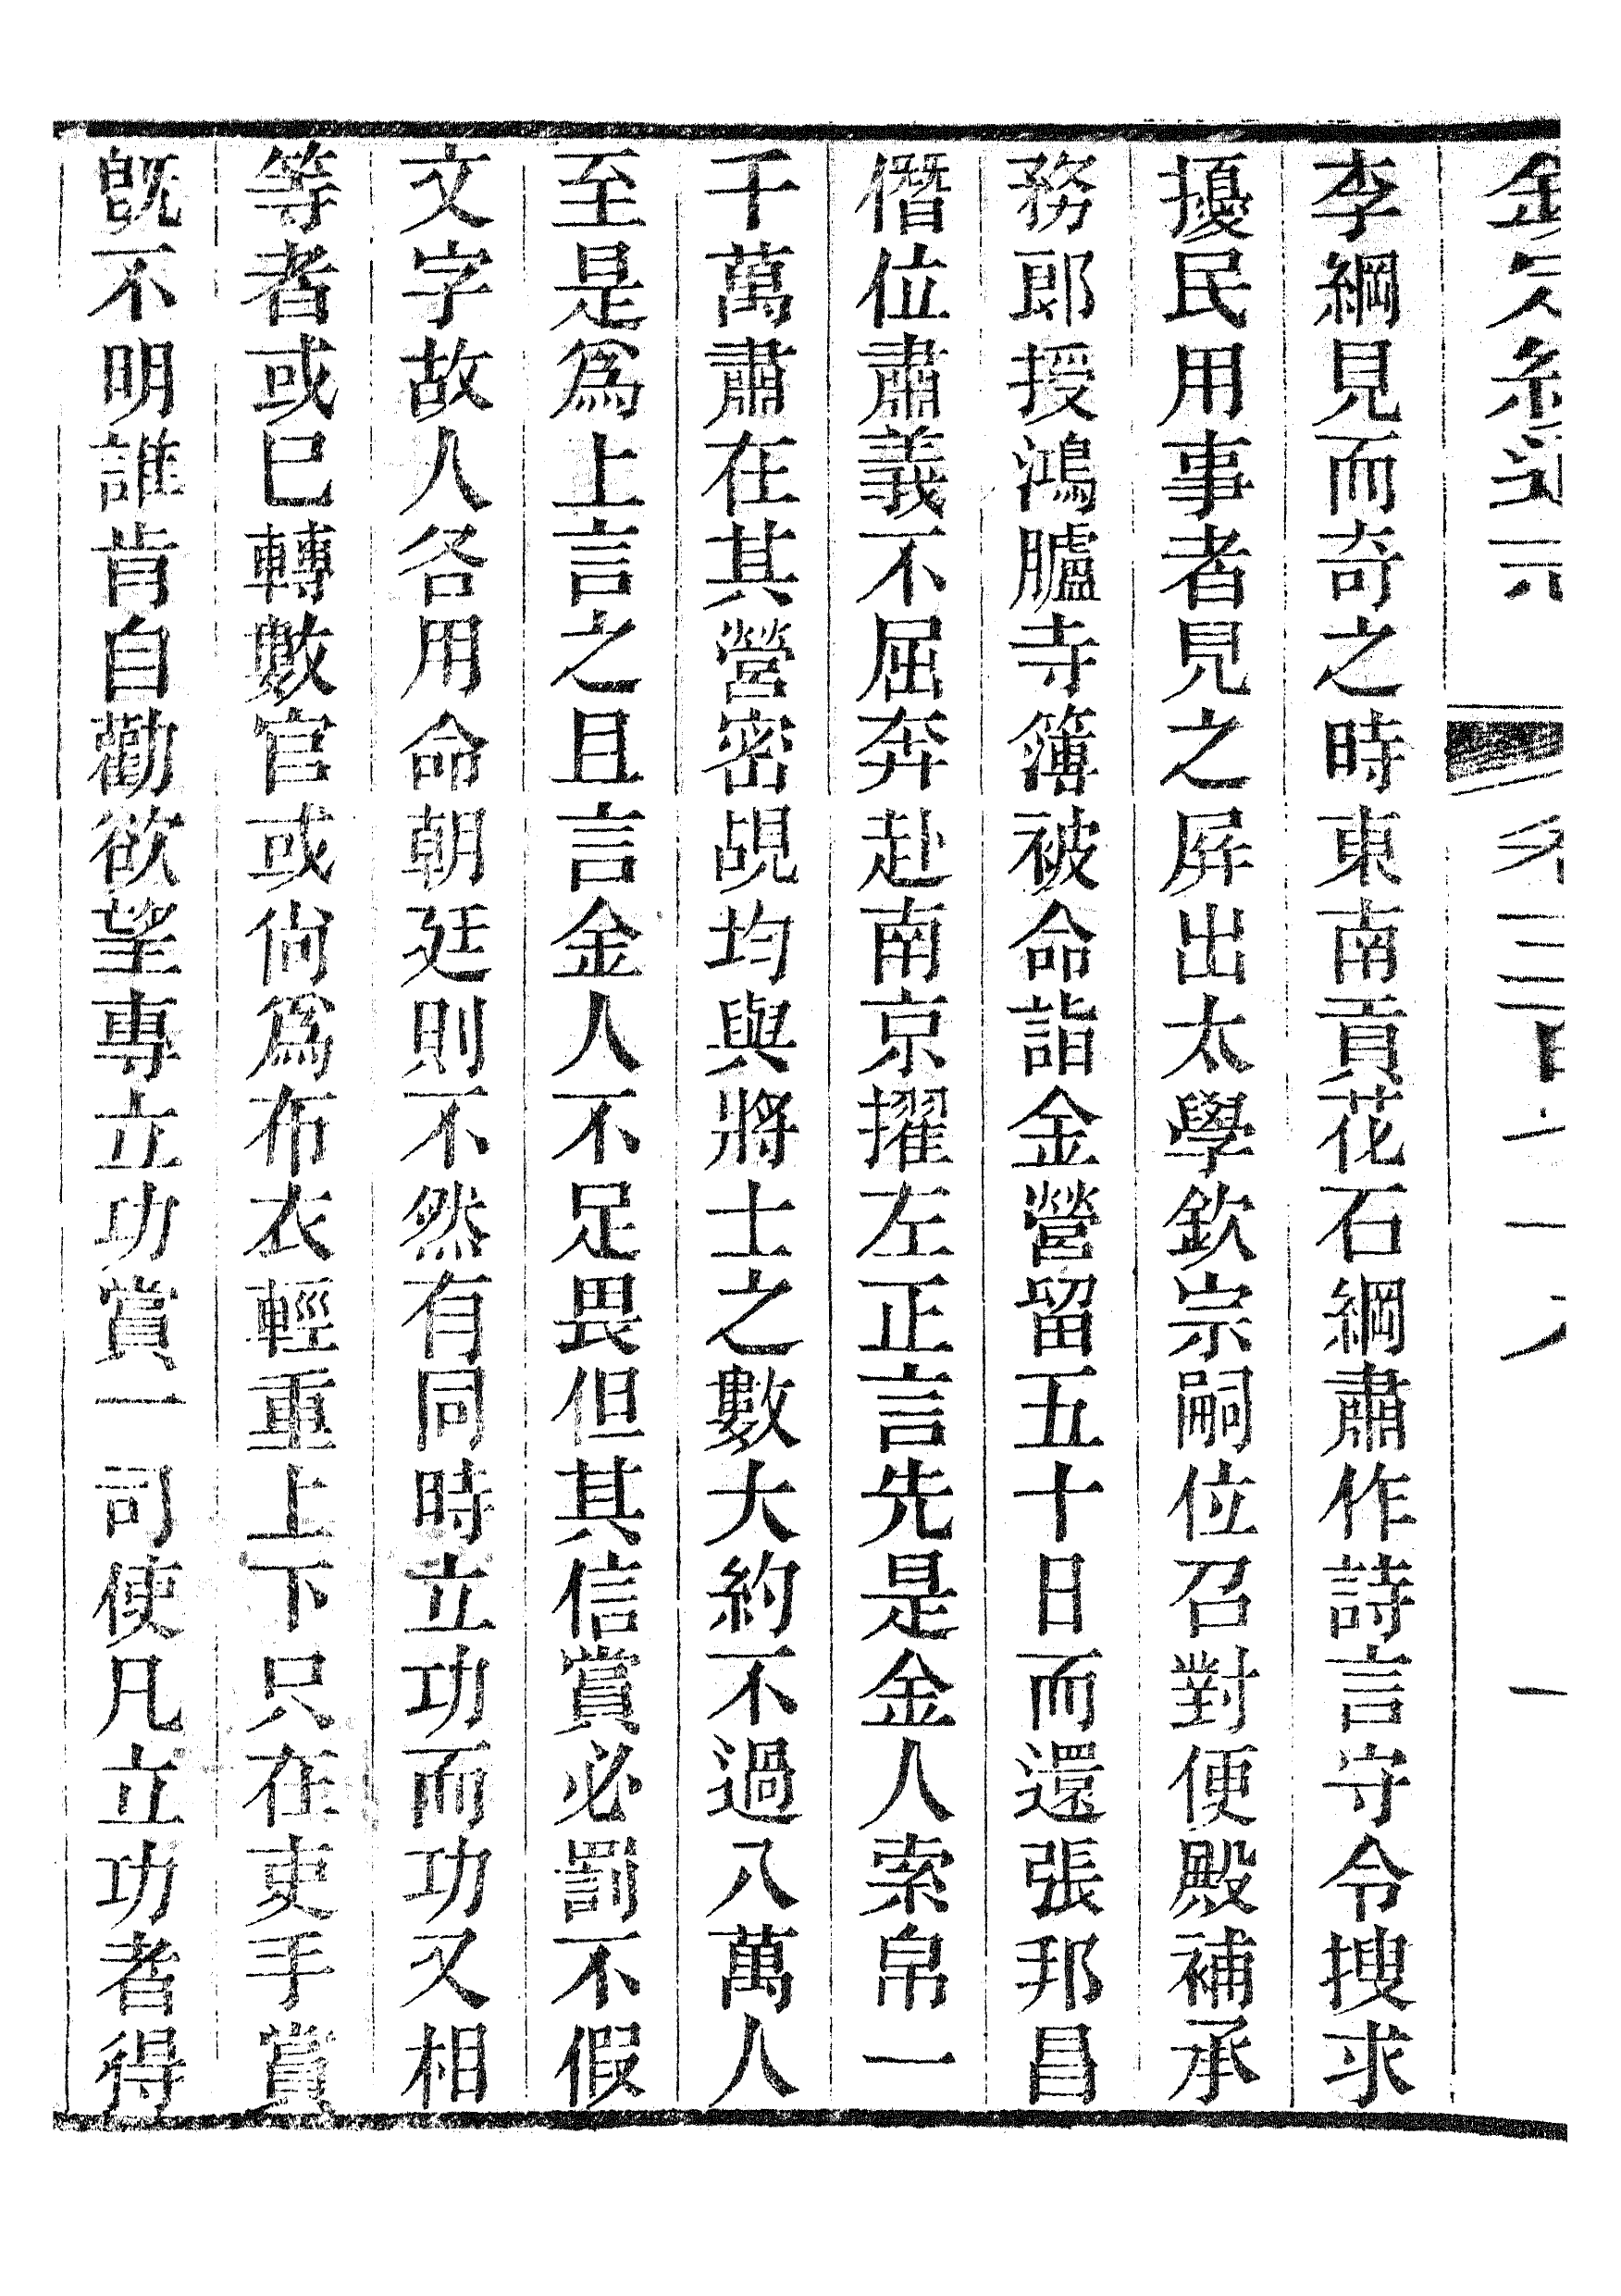 李綱見而奇之時東南貢花石綱肅作詩言守令搜求
擾民用事者見之屏出太學欽宗嗣位召對便殿補承
務郎授鴻臚寺簿被命詣金營留五十日而還張邦昌
僭位肅義不屈奔赴南京擢左正言先是金人索帛一
千萬肅在其營密覘均與將士之數大約不過八萬人
至是爲上言之且言金人不足畏但其信賞必罰不假
文字故人各用命朝廷則不然有同時立功而功又相
等者或巳轉數官或尙爲布衣輕重上下只在吏手賞
旣不明誰肯自勸欲望專立功賞一司使凡立功者得